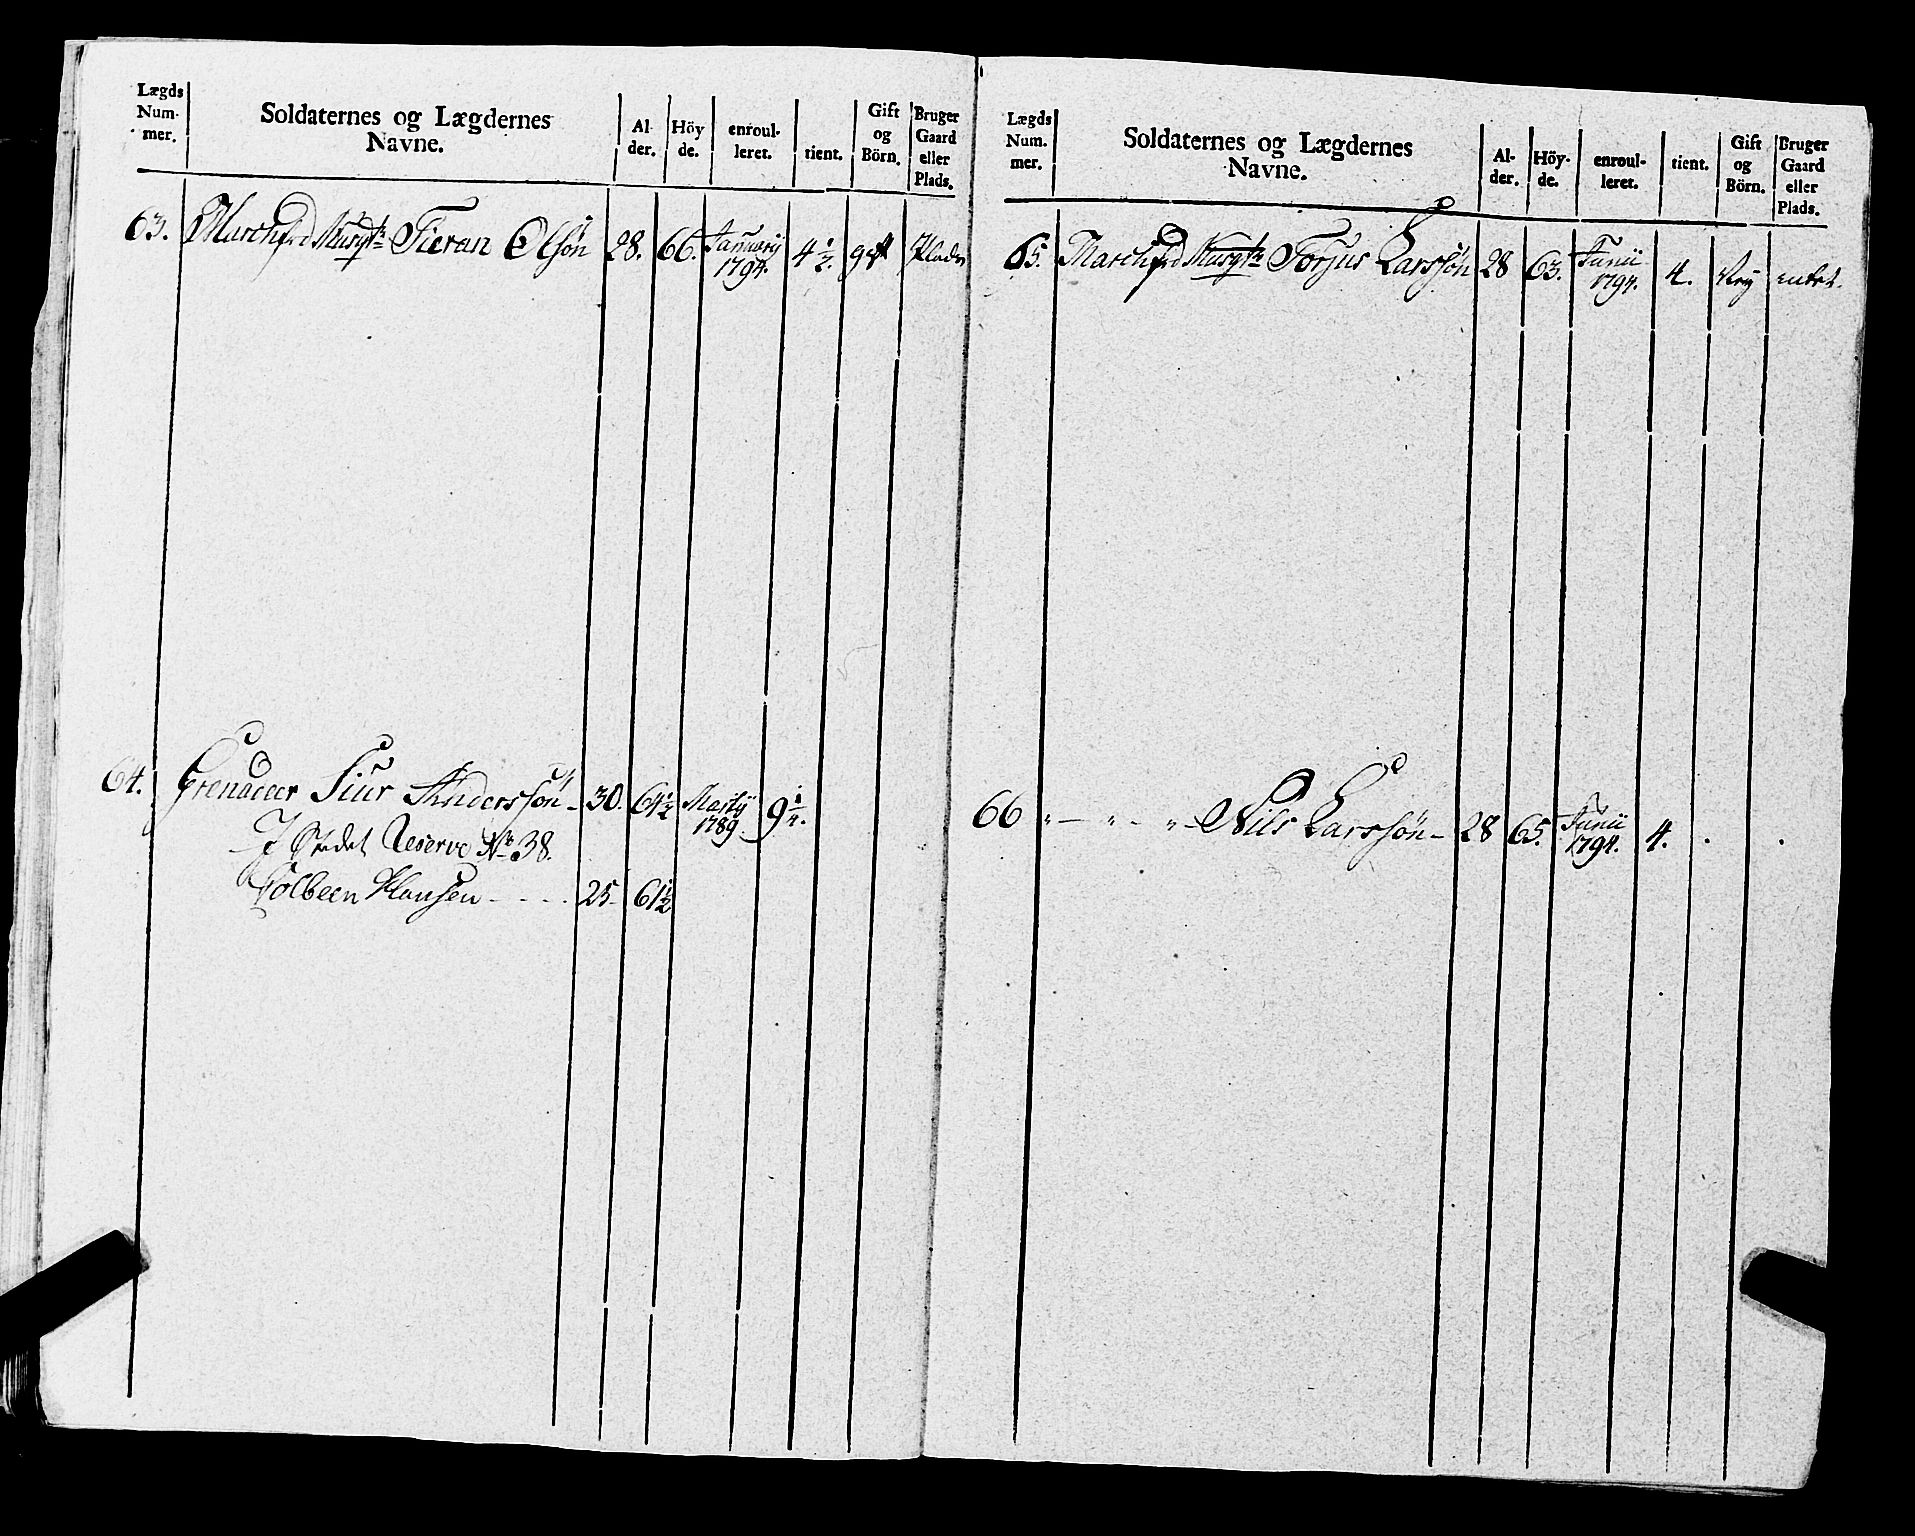 Lægds Num- mer.
Soldaternes og Lægdernes Navne.
Al- der.
Höy de.
enroul- leret.
tient.
Gift og Börn.
Bruger Gaard eller Plads.
63. Marchfrd Musqtr Tieran Olsøn 28. 66. January 1794. 4 1/2. gift Plads
64. Grenadeer Siur Anderssøn - 30. 64 1/2 Martij 1789. 9 1/4.
I Stedet Reserve No 38.
Tolbeen Hansen - - - - 25 61 1/2
Lægds Num. mer.
Soldaternes og Lægdernes Navne.
Al- der.
Höy- de.
enroul- leret.
tient.
Gift og Börn.
Bruger Gaard eller Plads.
65. Marchfrd Musqtr Torjus Larssøn 28 63. Junii 1794. 4. Ney intet.
66 " — " — " — Nils Larssøn - 28 65. Junii 1794. 4. . .